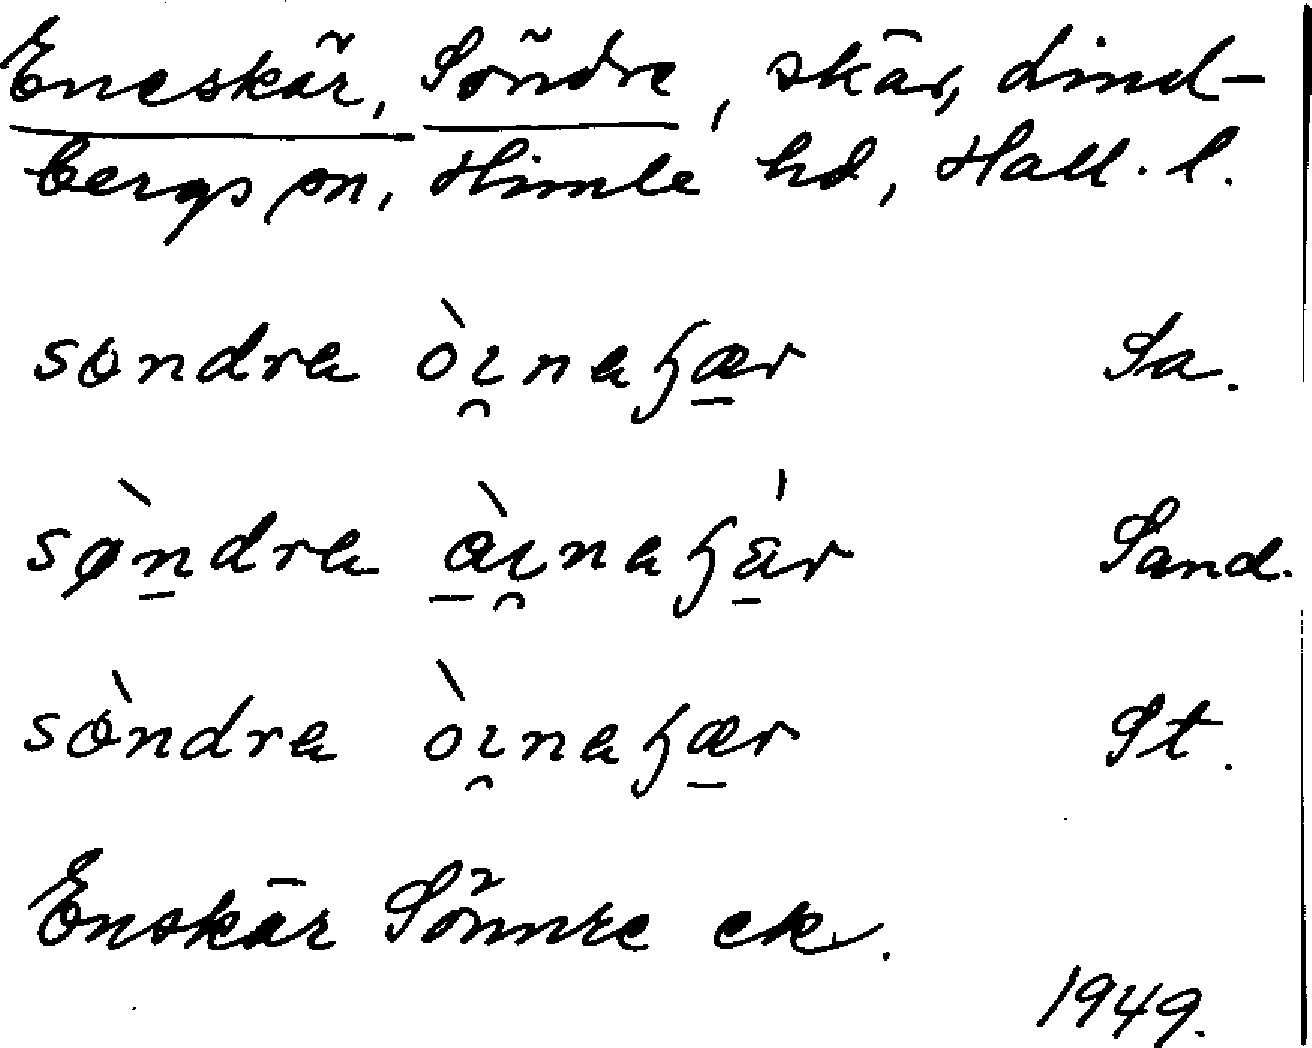 Eneskär, Söndre, skär, Lind-
bergs sn, Himle hd, Hall. l.
søndra òı̯naʂæ̠r Sa.
sø̀n̠dra à̠ı̯naʂä̠́r Sand.
sø̀ndra òı̯naʂæ̠r St.
Enskär Sönnre ek.
1949.